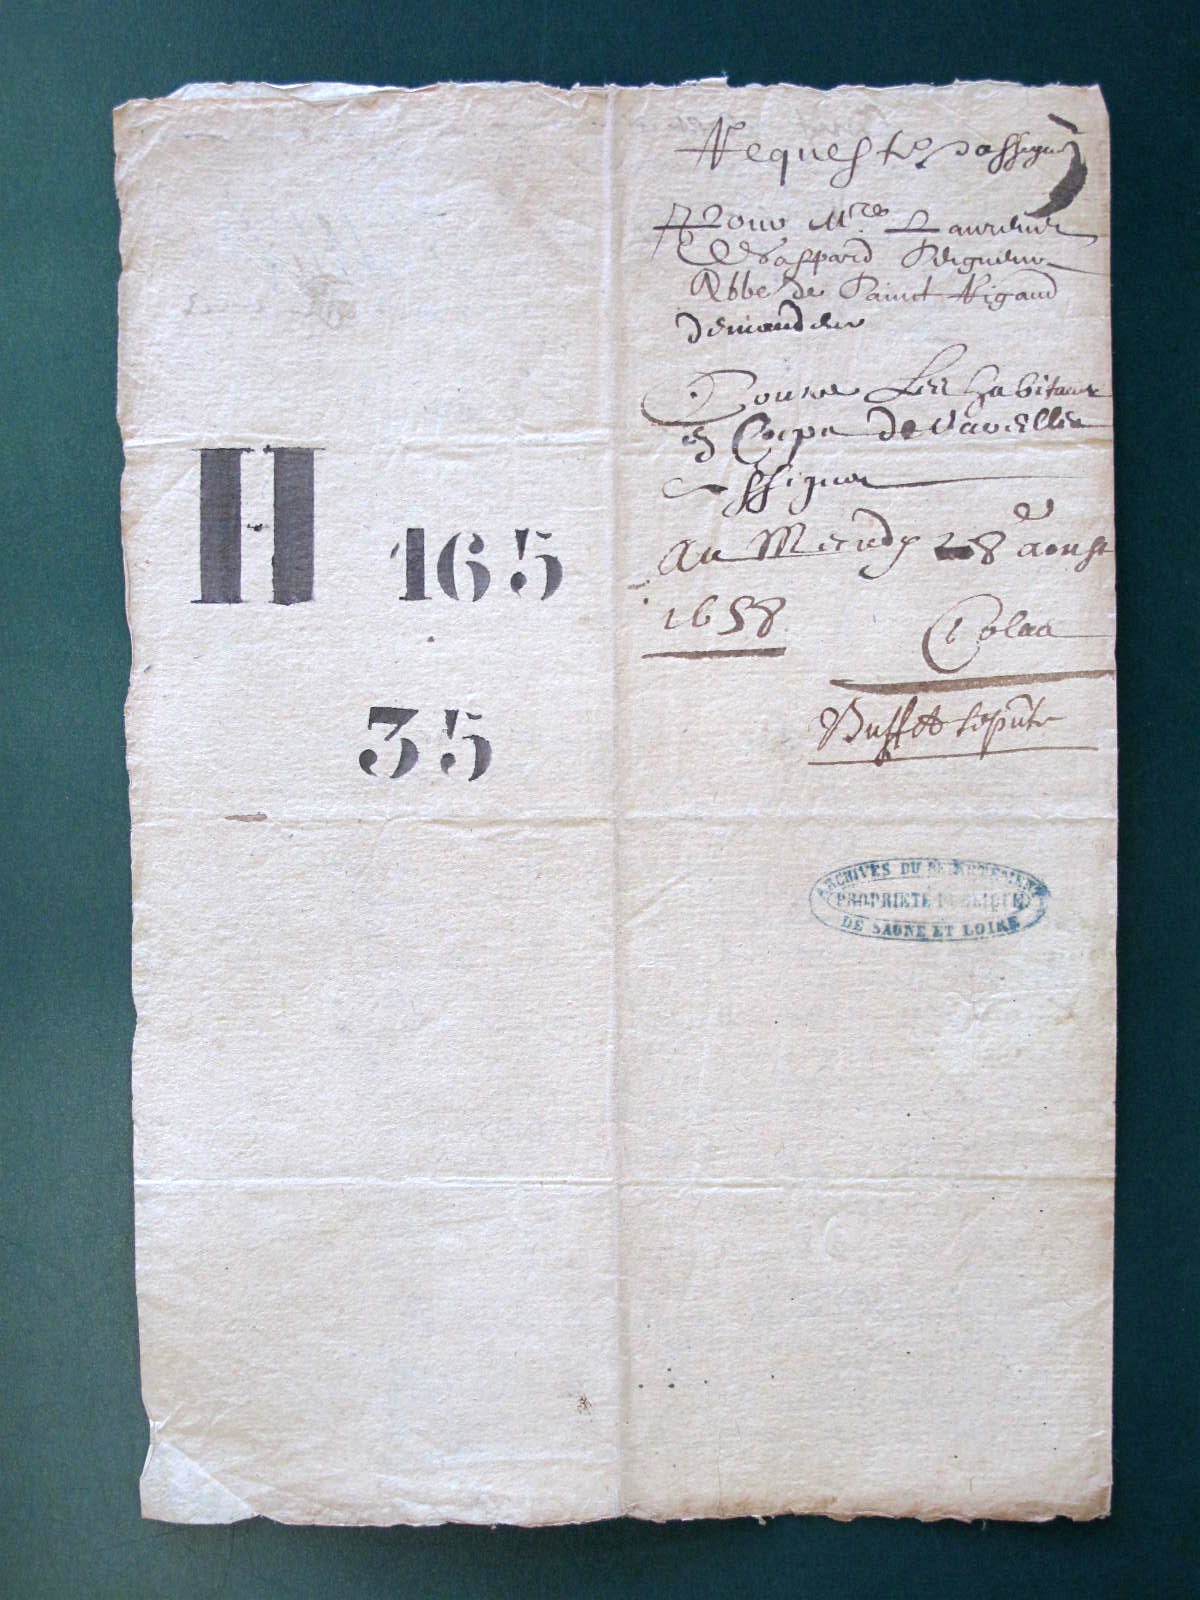 Requeste d'assigné
Pour Mre Laurent
Gaspard Seigneur
Abbé de Sainct Rigaud
demandeur
Contre Les habitans
en Corps de Varellie
assignez
Au Mecredy 28e aoust
1658
Colas
Buffet
H 165
35
ARCHIVES DU DEPARTEMENT
PROPRIETE PUBLIQUE
DE SAONE ET LOIRE